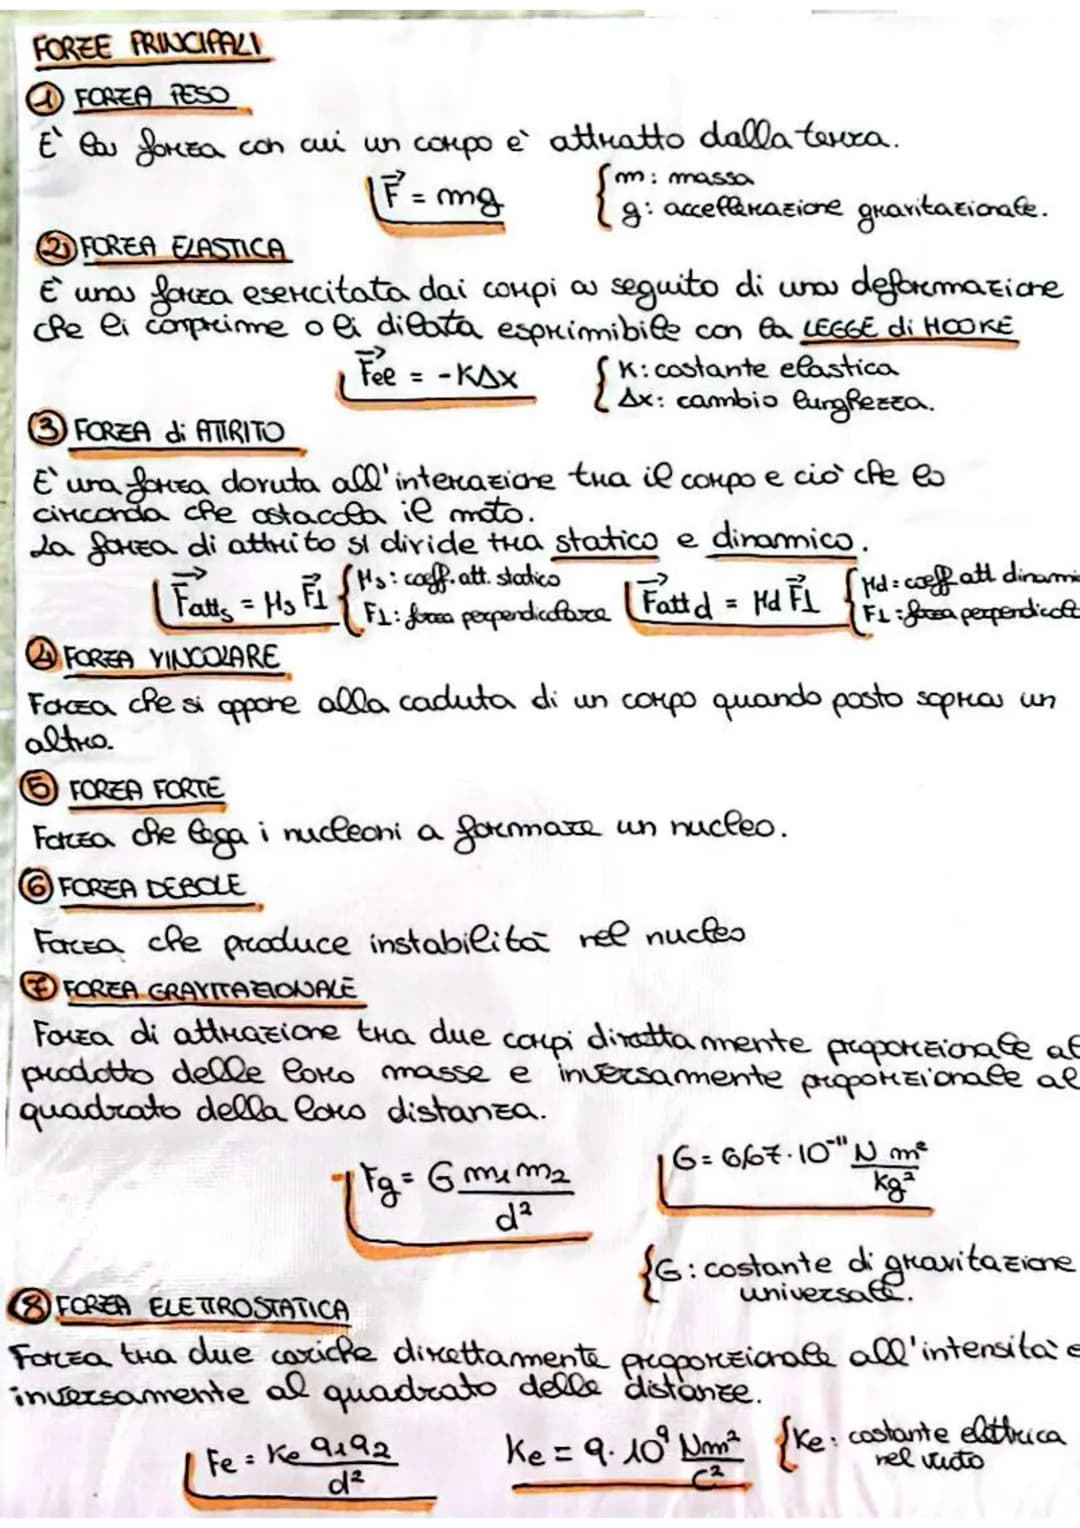 FORZE PRINCIPALI
1 FORZA PESO
E' la forza con cui un corpo è attratto dalla terra.
F⃗ = mg { m: massa
g: accellerazione gravitazionale.
2 FORZA ELASTICA
È una forza esercitata dai corpi a seguito di una deformazione
che li comprime o li dilata esprimibile con la LEGGE di HOOKE
F⃗el = -KΔx { K: costante elastica
Δx: cambio lunghezza.
3 FORZA di ATTRITO
E' una forza dovuta all'interazione tra il corpo e ciò che lo
circonda che ostacola il moto.
La forza di attrito si divide tra statico e dinamico.
F⃗atts = μs F⃗⊥ { μs: coeff. att. statico
F⊥: forza perpendicolare
F⃗att d = μd F⃗⊥ { μd: coeff att dinami
F⊥: forza perpendicol
4 FORZA VINCOLARE
Forza che si oppone alla caduta di un corpo quando posto sopra un
altro.
5 FORZA FORTE
Forza che lega i nucleoni a formare un nucleo.
6 FORZA DEBOLE
Forza che produce instabilità nel nucleo
7 FORZA GRAVITAZIONALE
Forza di attrazione tra due corpi direttamente proporzionale al
prodotto delle loro masse e inversamente proporzionale al
quadrato della loro distanza.
Fg = G m₁m₂ / d²
G = 6,67·10⁻¹¹ N m² / kg²
{ G: costante di gravitazione
universale.
8 FORZA ELETTROSTATICA
Forza tra due cariche direttamente proporzionale all'intensità e
inversamente al quadrato delle distanze.
Fe = Ke q₁q₂ / d²
Ke = 9·10⁹ Nm² / C² { Ke: costante elettrica
nel vuoto